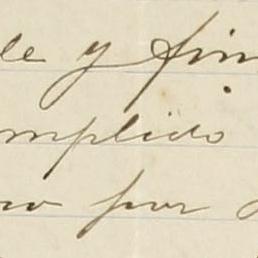 le y fin
mplido
no por